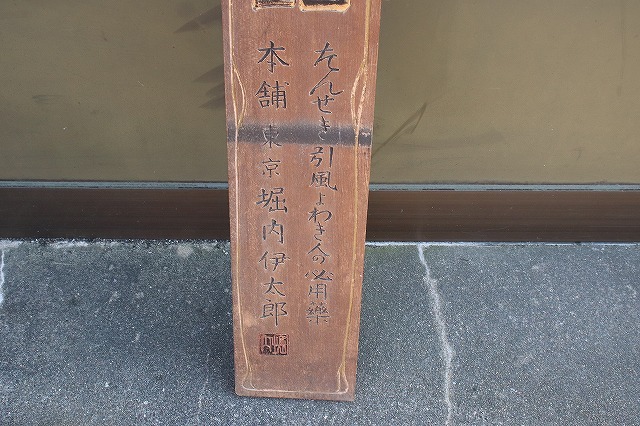 たんせき引風よわき人の必用薬
本舗 東京 堀内伊太郎